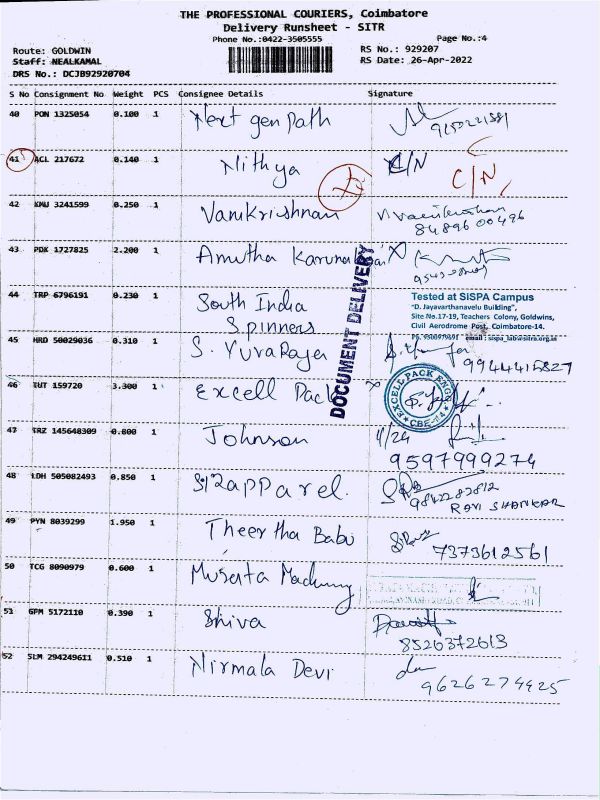 THE PROFESSIONAL COURIERS, Coimbatore
Delivery Runsheet - SITR
Phone No.:0422-3505555
Page No.:4
Route: GOLDWIN
RS No.: 929207
Staff: NEALKAMAL
RS Date: 26-Apr-2022
DRS No.: DCJB92920704
S No Consignment No Weight PCS Consignee Details Signature
40 PON 1325054 0.100 1 Next gen path
41 ACL 217672 0.140 1 Nithya C/N C/N
42 KMU 3241599 0.250 1 Vanikrishnan
8489600496
43 PDK 1727825 2.200 1 Amutha
44 TRP 6796191 0.230 1 South India
Spinners
Tested at SiSPA Campus
"D. Jayavarthanavelu Building",
Site No.17-19, Teachers Colony, Goldwins,
Civil Aerodrome Post, Coimbatore-14.
DOCUMENT DELIVERY
45 HRD 50029036 0.310 1 S. YuvaRajer
9944415827
46 TUT 159720 3.300 1 Excell Pack
EXCELL PACK ENGG
CBE-14
47 TRZ 145648309 0.800 1 Johnson
9597999274
48 LDH 505082493 0.850 1 S12apparel.
9842282812
RAVI SHANKAR
49 PYN 8039299 1.950 1 Theertha Babu
7373612561
50 TCG 8090979 0.600 1
51 GPM 5172110 0.390 1 Shiva
8526372613
52 SLM 294249611 0.510 1 Nirmala Devi
9626274925